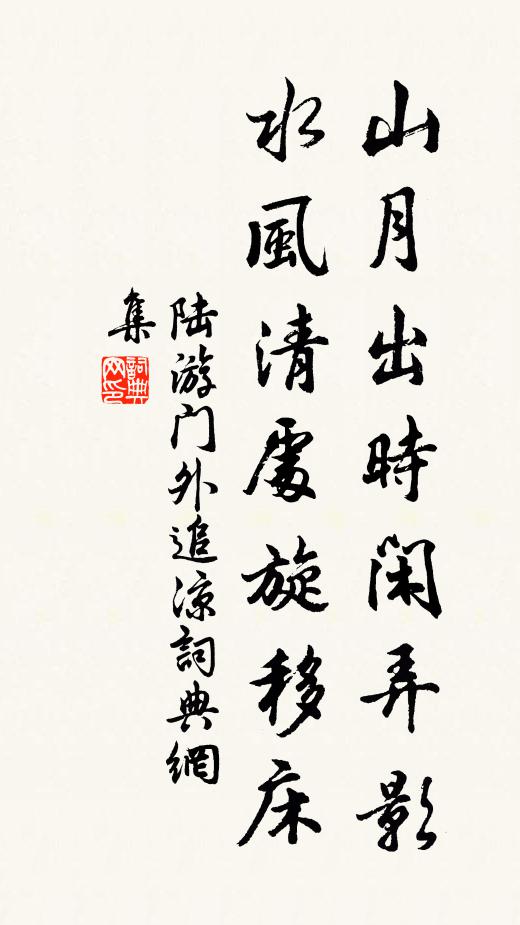 山月出時閑弄影
水風清處旋移床
陆游门外追涼詞典網
集
詞典
网印